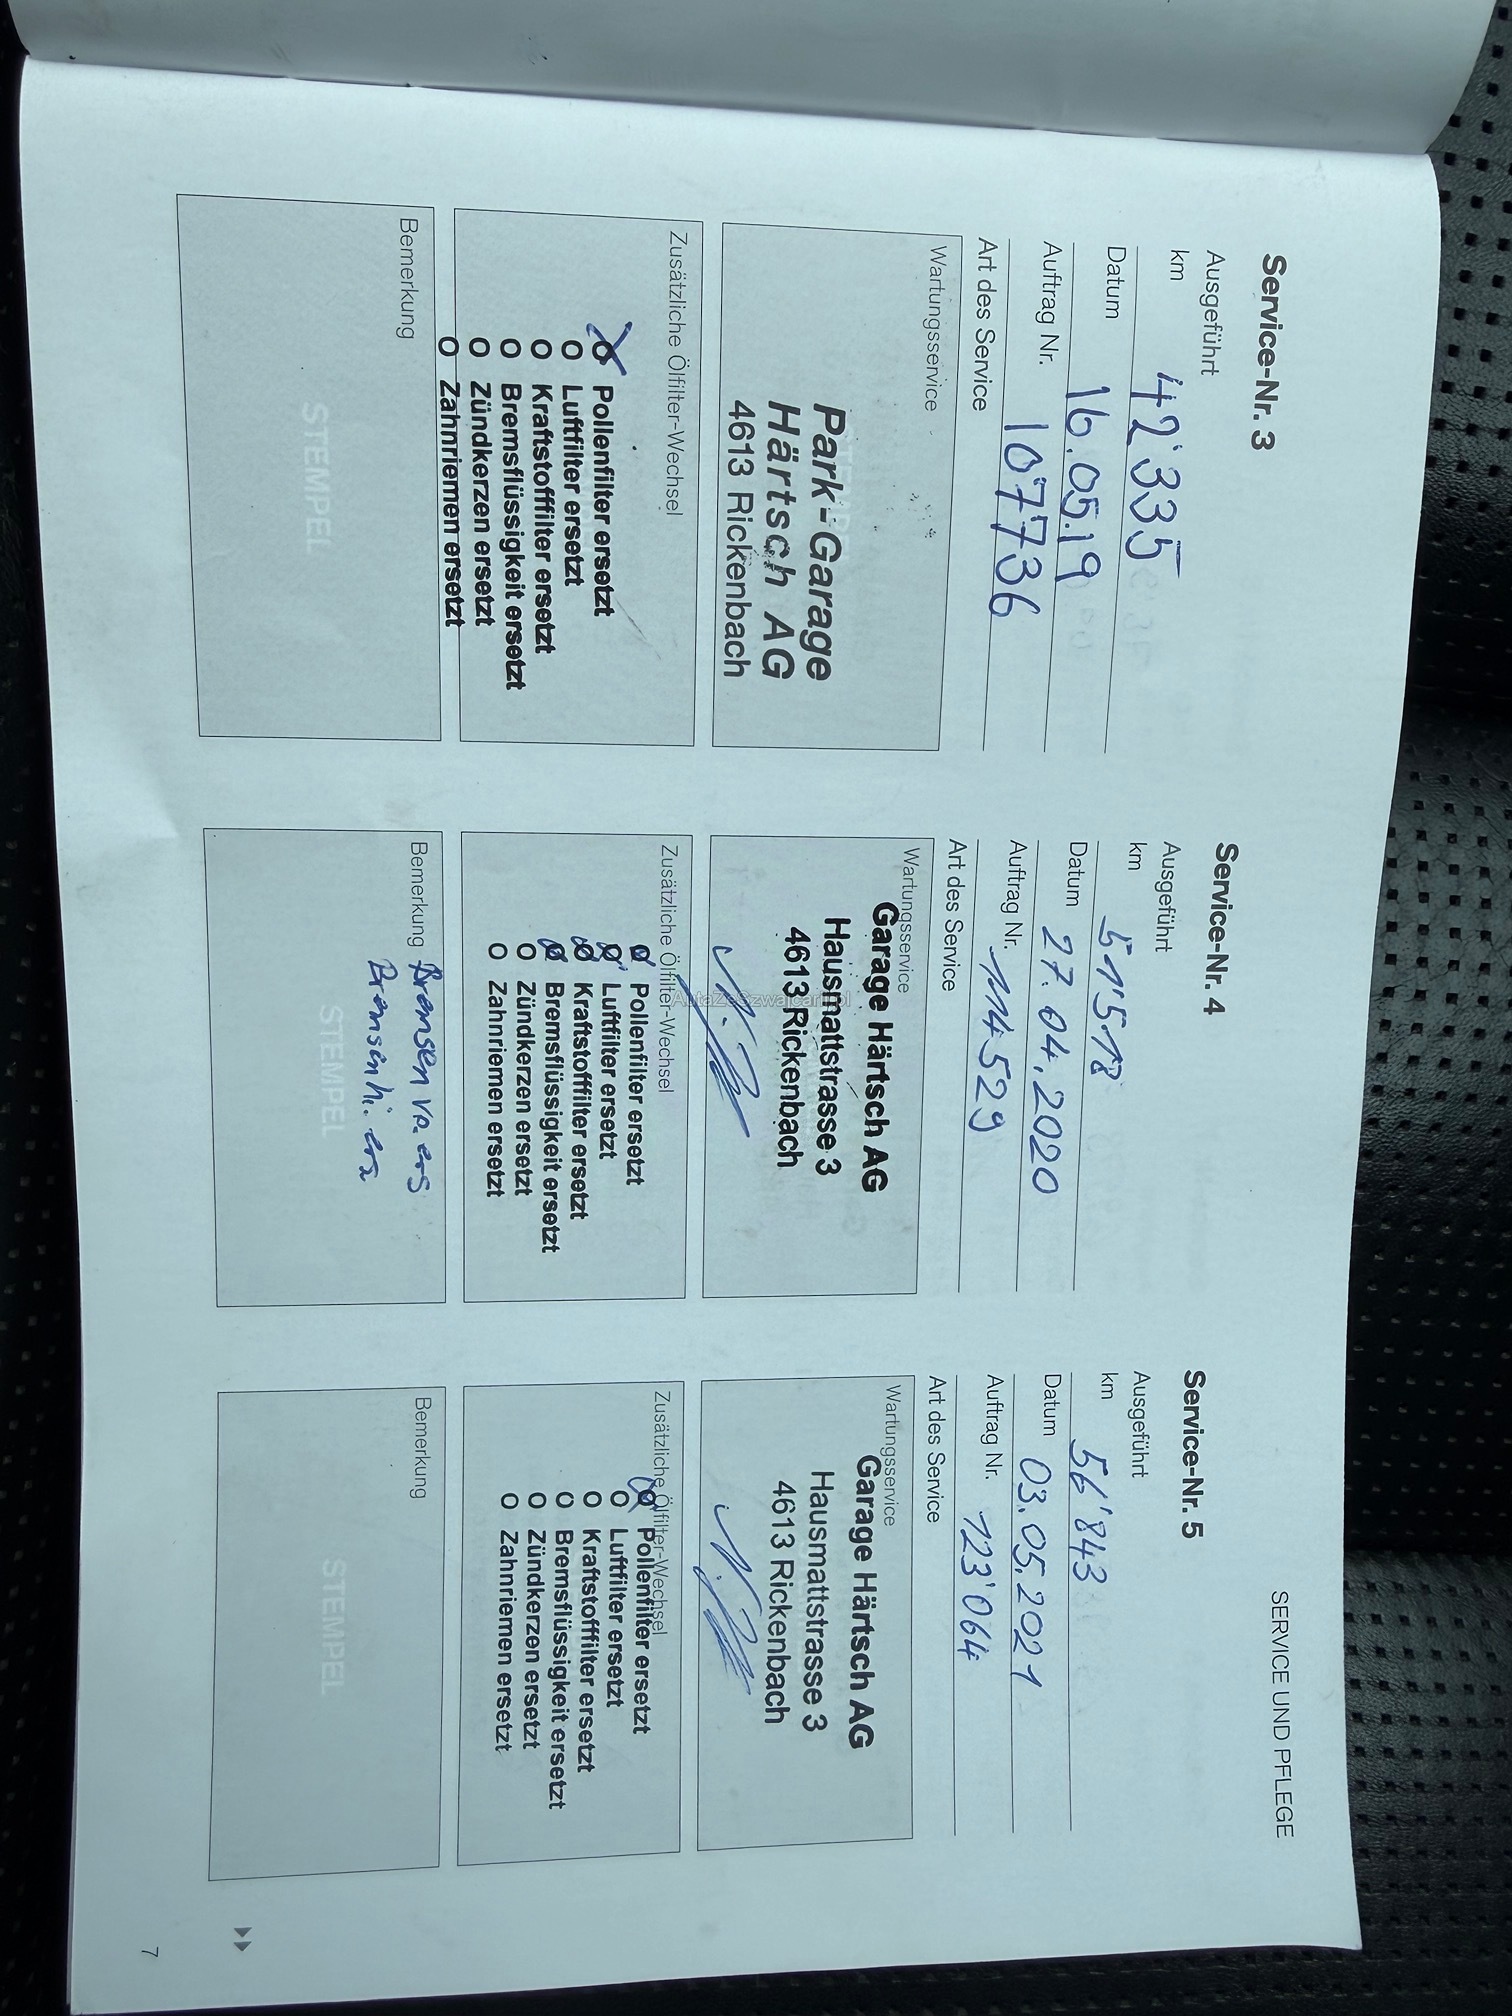 SERVICE UND PFLEGE
Service-Nr. 3
Ausgeführt
km 42'335
Datum 16.05.19
Auftrag Nr. 107736
Art des Service
Wartungsservice
Park-Garage
Härtsch AG
4613 Rickenbach
Zusätzliche Ölfilter-Wechsel
O Pollenfilter ersetzt
O Luftfilter ersetzt
O Kraftstofffilter ersetzt
O Bremsflüssigkeit ersetzt
O Zündkerzen ersetzt
O Zahnriemen ersetzt
Bemerkung
STEMPEL
Service-Nr. 4
Ausgeführt
km 51'518
Datum 27.04.2020
Auftrag Nr. 114529
Art des Service
Wartungsservice
Garage Härtsch AG
Hausmattstrasse 3
4613 Rickenbach
AutaZeSzwajcarii.pl
Zusätzliche Ölfilter-Wechsel
O Pollenfilter ersetzt
O Luftfilter ersetzt
O Kraftstofffilter ersetzt
O Bremsflüssigkeit ersetzt
O Zündkerzen ersetzt
O Zahnriemen ersetzt
Bemerkung Bremsen vo. ers
Bremsen hi. ers
STEMPEL
Service-Nr. 5
Ausgeführt
km 56'843
Datum 03.05.2021
Auftrag Nr. 123'064
Art des Service
Wartungsservice
Garage Härtsch AG
Hausmattstrasse 3
4613 Rickenbach
Zusätzliche Ölfilter-Wechsel
O Pollenfilter ersetzt
O Luftfilter ersetzt
O Kraftstofffilter ersetzt
O Bremsflüssigkeit ersetzt
O Zündkerzen ersetzt
O Zahnriemen ersetzt
Bemerkung
STEMPEL
7